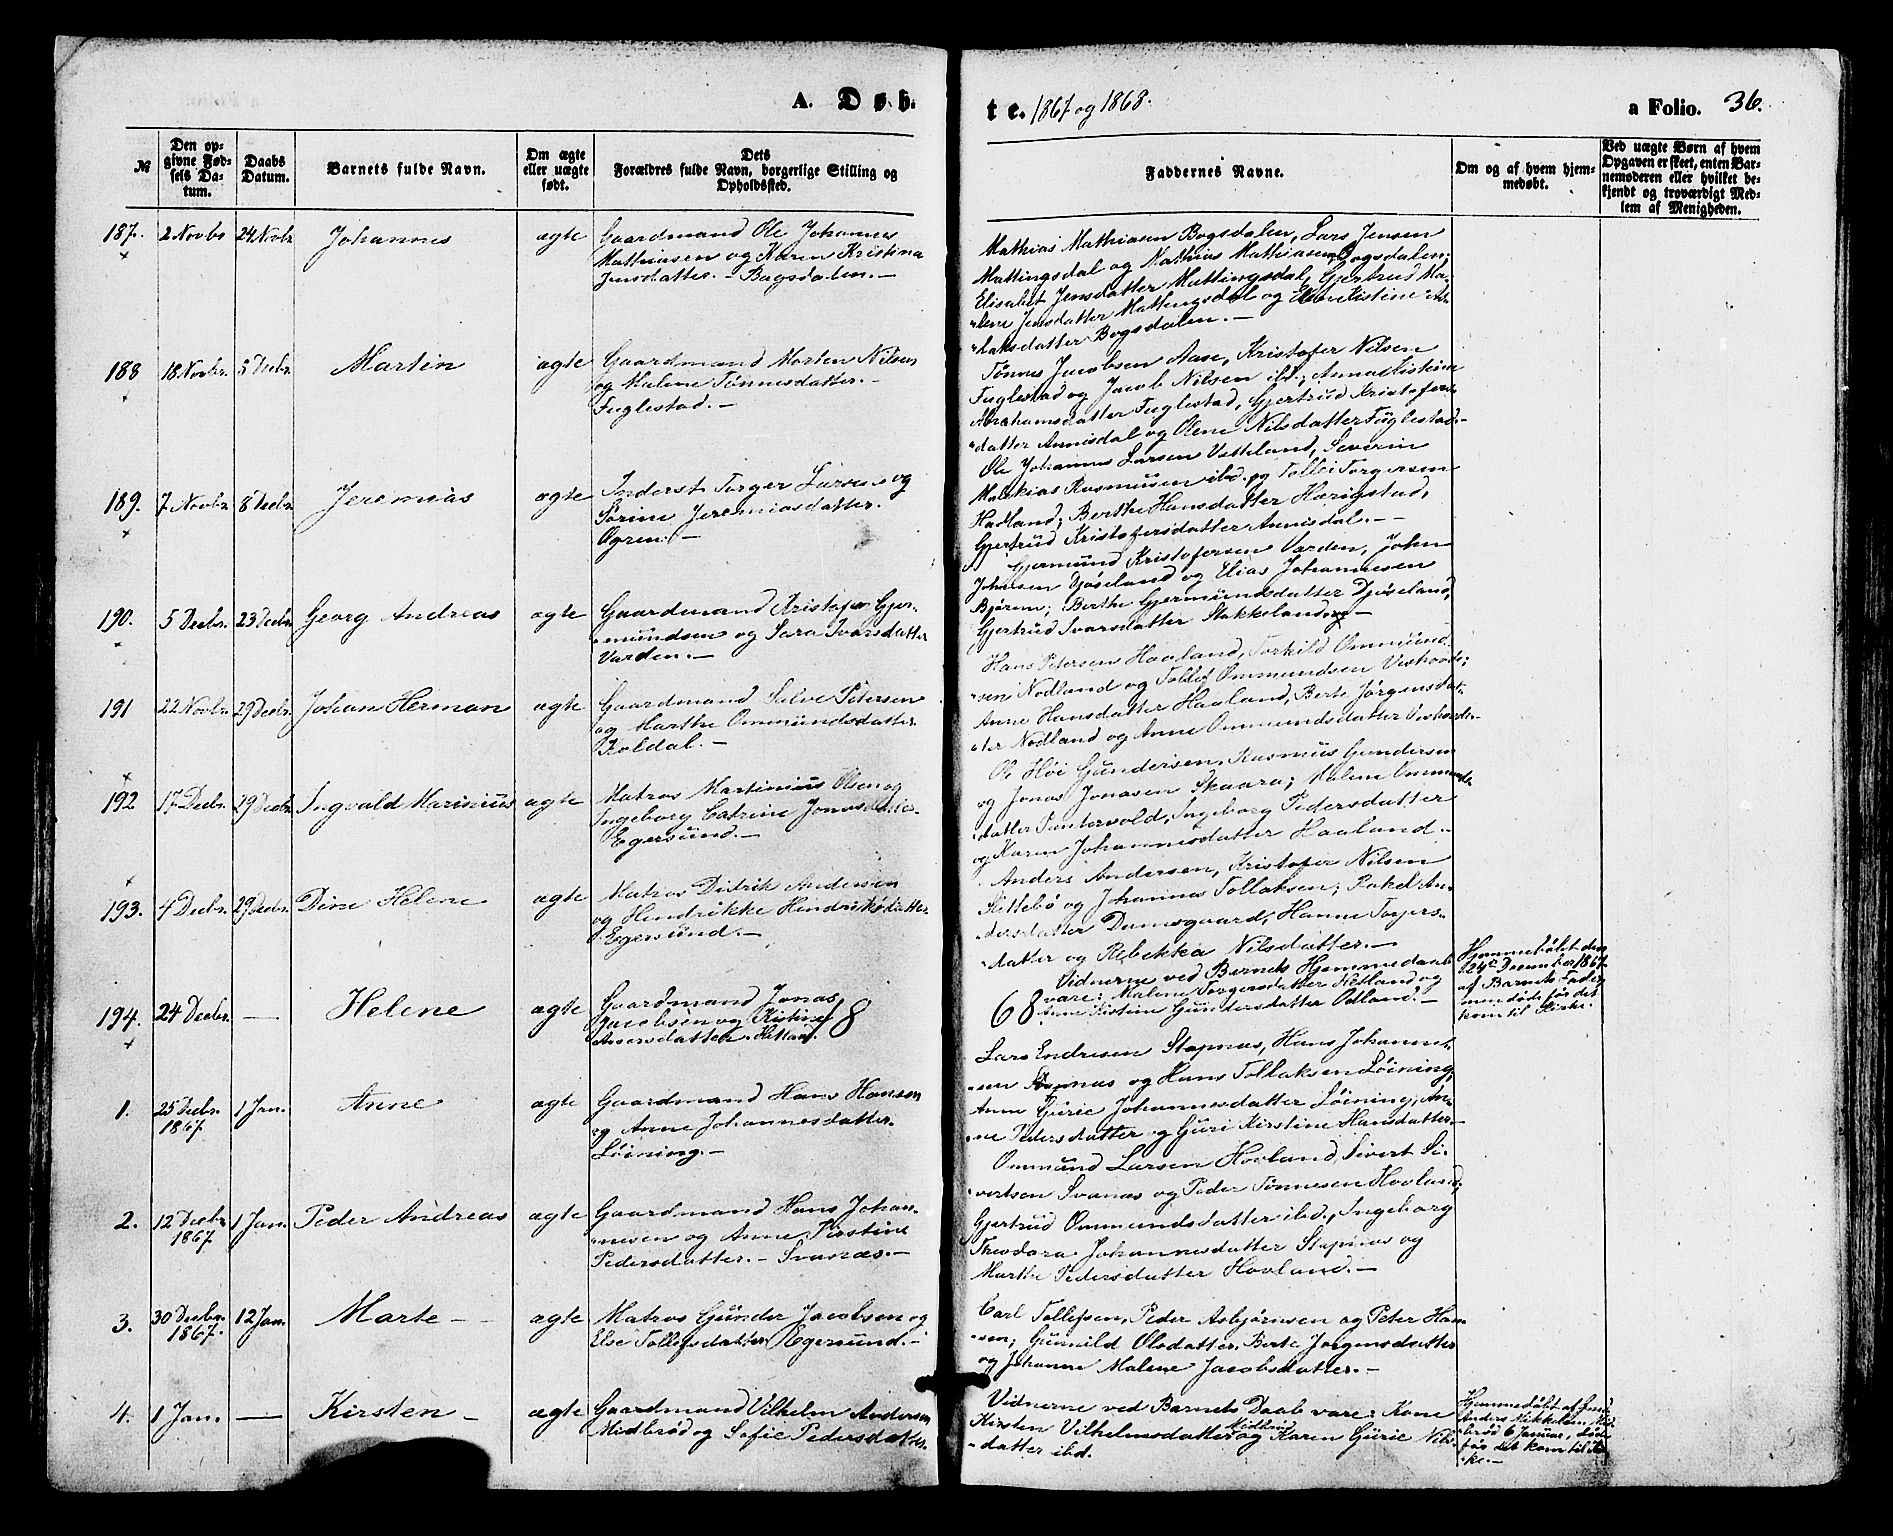 A. Døb-
te. 1867 og 1868.
a Folio. 36.
№
Den op-
givne Fød-
sels Da-
tum.
Daabs
Datum.
Barnets fulde Navn.
Om ægte
eller uægte
født.
Dets
Forældres fulde Navn, borgerlige Stilling og
Opholdssted.
Faddernes Navne.
Om og af hvem hjem-
medøbt.
Ved uægte Børn af hvem
Opgaven er skeet, enten Bar-
nemoderen eller hvilket be-
kjendt og troværdigt Med-
lem af Menigheden.
187. 2 Novbr 24 Novbr Johannes ægte
Gaardmand Ole Johannes
Mathiasen og Karen Kristina
Jensdatter. - Bogsdalen. -
Mathias Mathiasen Bogsdalen, Lars Jensen
Mattingsdal og Mathias Mathiasen Bogsdalen;
Elisabet Jensdatter Mattingsdal, Gjertrud Ma-
lene Jensdatter Mattingsdal og Kistine
datter Bogsdalen. -
188 18 Novbr. 5 Decbr. Martin ægte
Gaardmand Morten Nilsen
og Malene Tønnesdatter. -
Fuglestad. -
Tønnes Jacobsen Aase, Kristofer Nilsen
Fuglestad og Jacob Nilsen ibd.; Anna Kistine
Abrahamsdatter Fuglestad, Gjertrud Kristofers-
datter Annisdal og Olene Nilsdatter Fuglestad. -
189. 7 Novbr. 8 Decbr. Jeremias ægte
Inderst Torger Larsen og
Sørine Jeremiasdatter.
Ogren. -
Ole Johannes Larsen Vetteland, Severin
Rasmusen ibd. og Tollei Torgersen
Hadland; Berthe Hansdatter Hærigstad,
Gjertrud Kristofersdatter Annisdal. -
190. 5 Decbr. 23 Decbr. Georg Andreas ægte
Gaardmand Kristofer Gjer-
mundsen og Sara Ivarsdatter
Varden. -
Gjermund Kristofersen Varden, John
Johnsen Djøseland og Elias Johannesen
Bjørem; Berthe Gjermundsdatter Djøseland,
Gjertrud Ivarsdatter Stokkeland. -
191 22 Novbr. 29 Decbr. Johan Herman ægte
Gaardmand Salve Petersen
og Marthe Ommundsdatter
Koldal. -
Hans Petersen Haaland, Torkild Ommund-
sen Nodland og Tollef Ommundsen
Anne Hansdatter Haaland, Berte Jørgensdat-
ter Nodland og Anne Ommundsdatter
192 17 Decbr. 29 Decbr. Ingvald Marinius ægte
Matros Martinius Olsen og
Ingeborg Catrine Jonasdatter
Egersund. -
Ole Høi Gundersen, Rasmus Gundersen
og Jonas Jonasen Skaara; Malene Ommunds-
datter Ingeborg Pedersdatter
og Karen Johannesdatter Haaland. -
193. 4 Decbr. 29 Decbr. Dine Helene ægte
Matros Didrik Andersen
og Hendrikke Hindriksdatter.
Egersund. -
Anders Andersen, Kristofer Nilsen
Slettebø og Johannes Tollaksen; Rakel An-
dersdatter Damsgaard, Hanne Torgers-
datter og Rebekka Nilsdatter. -
194. 24 Decbr. - Helene ægte
Gaardmand Jonas
Jacobsen og Kistine
Hetland. 18
68
Vidnerne ved Barnets Hjemmedaab
vare: Malene Torgersdatter Hetland og
Anne Kistine Gundersdatter Odland. -
Hjemmedøbt den
24de December 1867
af Barnets Fader
men døde før det
kom til Kirke.
1. 25 Decbr. 1 Jan. Anne ægte
1867
Gaardmand Hans Hansen
og Anne Johannesdatter.
Løining. -
Lars Endresen Stapnæs, Hans Johannes-
sen og Hans Tollaksen Løining;
Anne Gurie Johannesdatter Løining, An-
ne Pedersdatter og Guri Kirstine Hansdatter. -
2. 12 Decbr. 1 Jan. Peder Andreas ægte
1867
Gaardmand Hans Johan-
nesen og Anne Kirstine
Pedersdatter. - Svanæs. -
Ommund Larsen Hovland, Sivert Si-
vertsen Svanæs og Peder Tønnesen Hovland;
Gjertrud Ommundsdatter ibd., Ingeborg
Theodora Johannesdatter Stapnæs og
Marthe Pedersdatter Hovland. -
3. 30 Decbr. 12 Jan. Marte - ægte
1867.
Matros Gunder Jacobsen og
Else Tollefsdatter Egersund. -
Carl Tollefsen, Peder Asbjørnsen og Peter Han-
sen; Gunnild Olsdatter, Berte Jørgensdatter
og Johanne Malene Jacobsdatter. -
4. 1 Jan. - Kirsten - ægte
Gaardmand Vilhelm Andersen
Midbrød og Sofie Pedersdatter. -
Vidnerne ved Barnets Daab vare: Kone
Kirsten Vilhelmsdatter Midbrød og Karen Gurie Nils-
datter ibd.
Hjemmedøbt af Gmd.
Anders Mikkelsen Mid-
brød 6 Januar, døde
før det kom til Kir-
ke. -